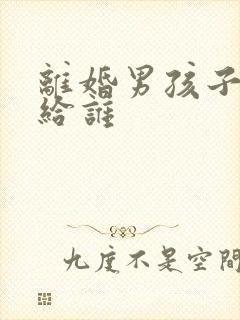 離婚男孩子
給誰
九度不是空間